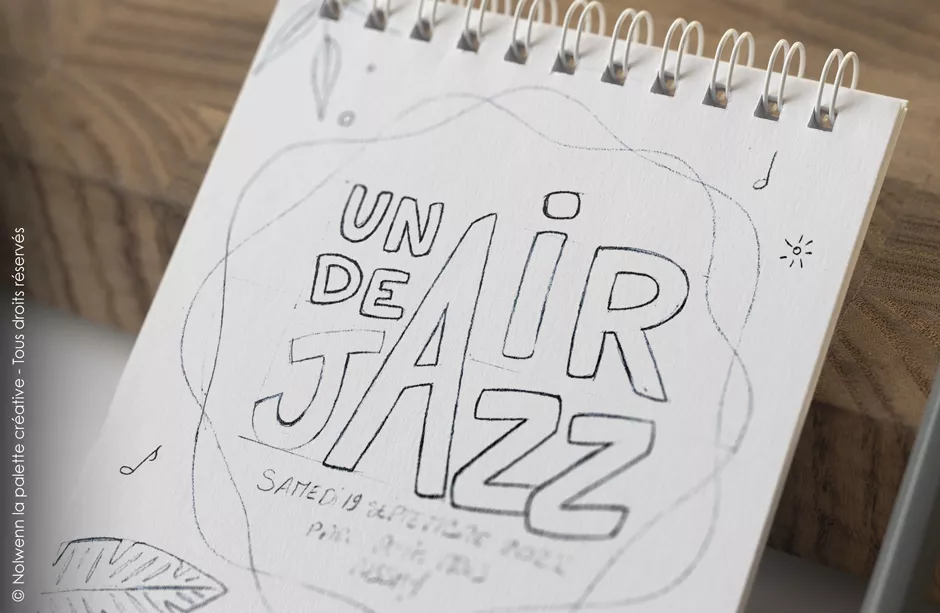 UN AiR
DE
JAZZ
SAMEDi 19 SEPTEMBRE
© Nolwenn la palette créative - Tous droits réservés